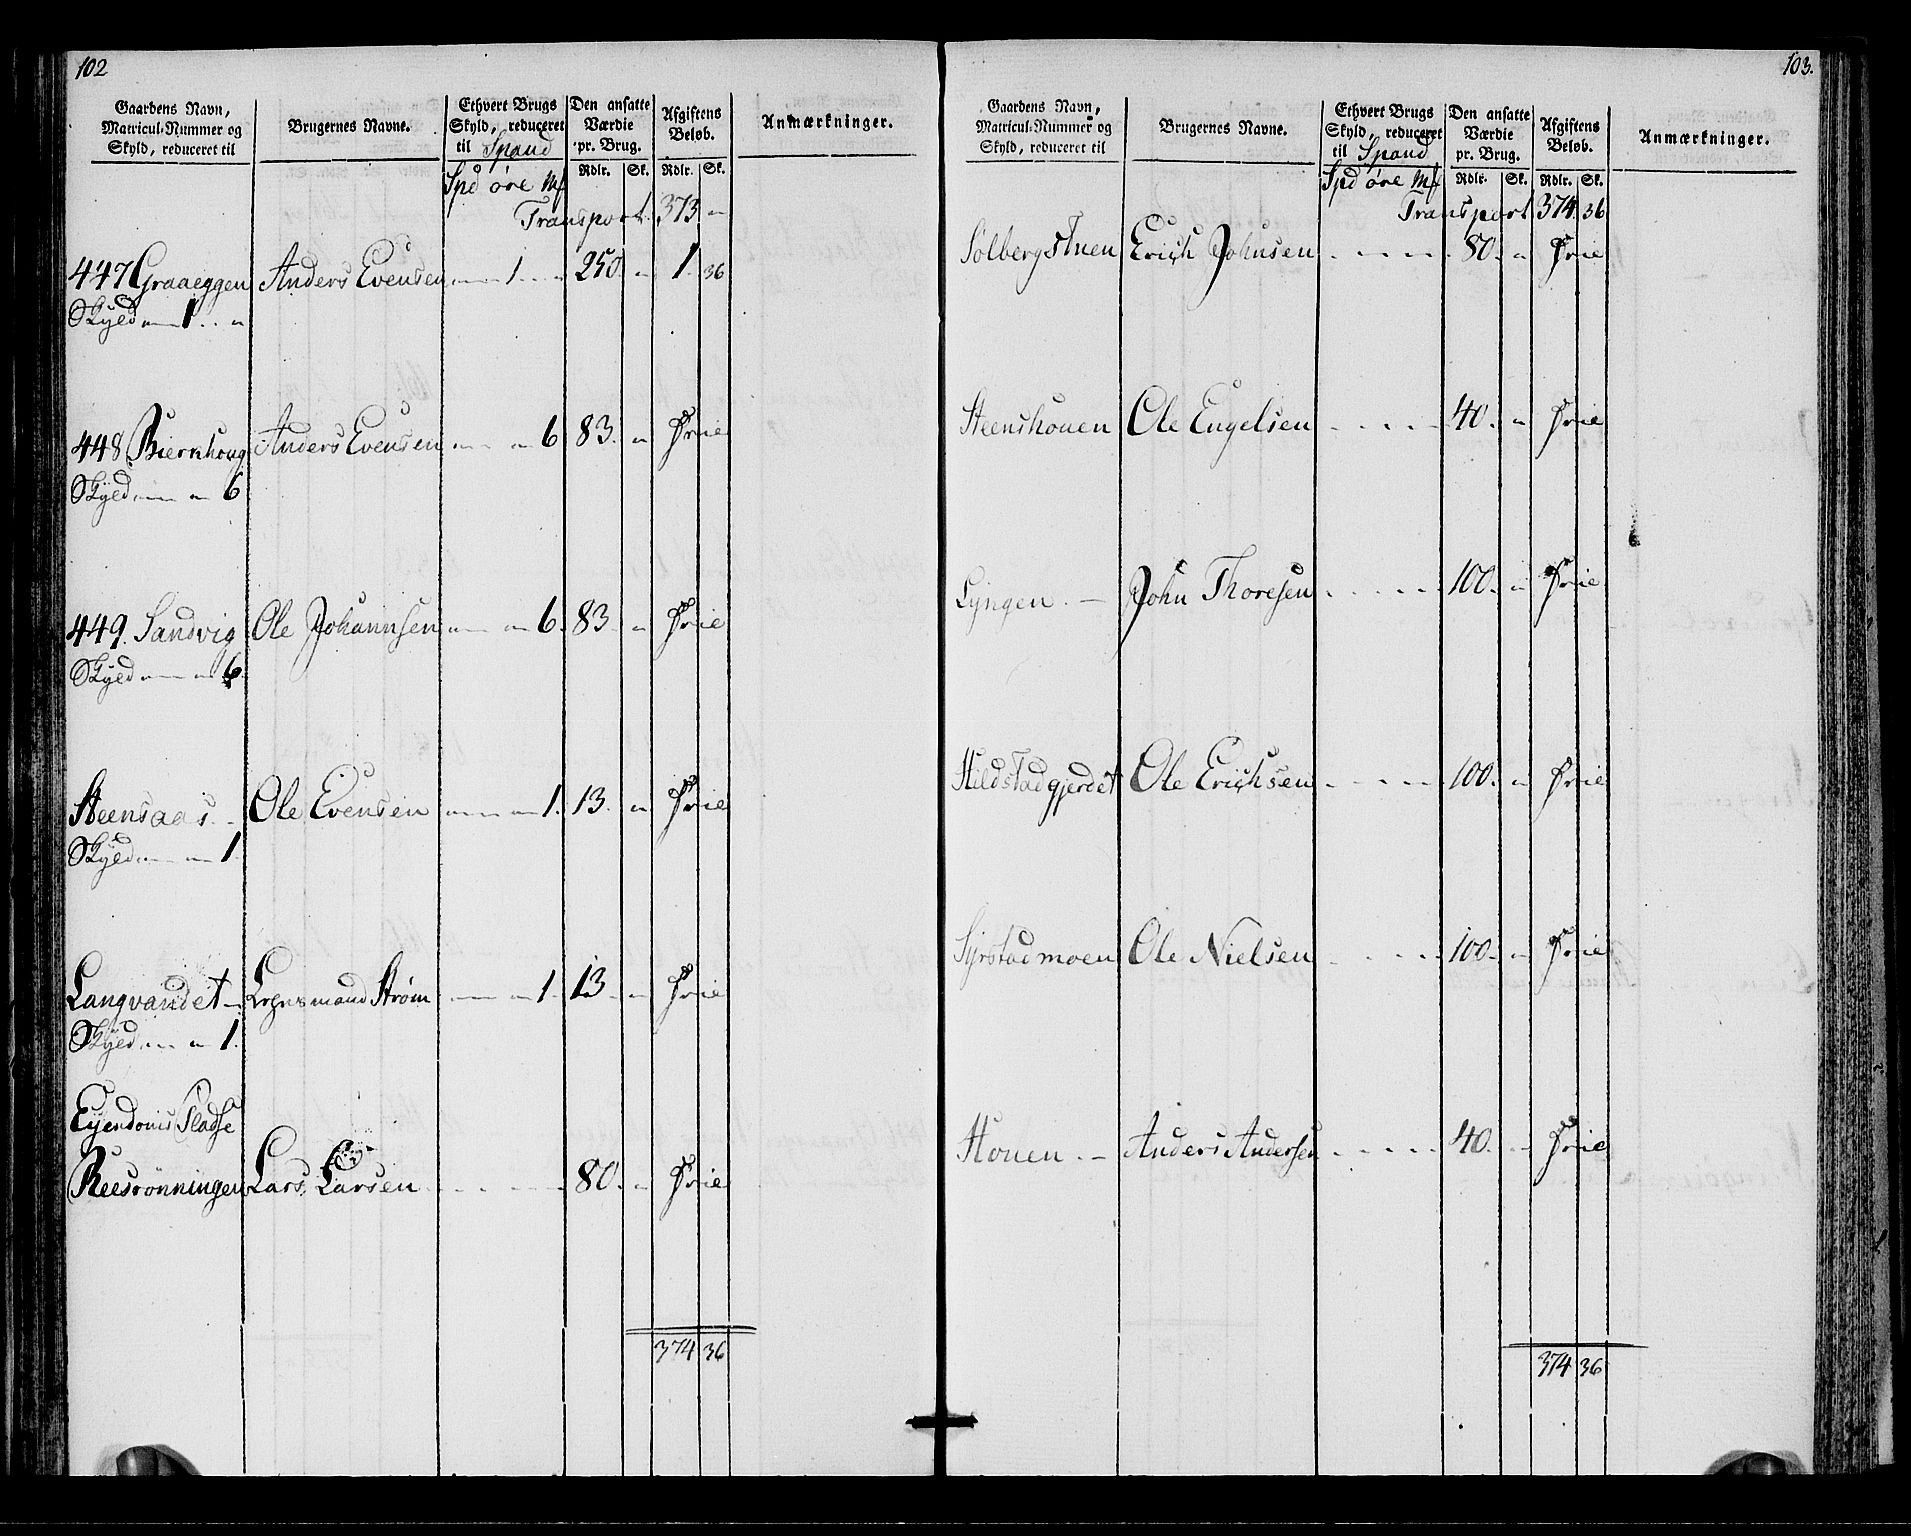 102
Gaardens Navn, Matricul-Nummer og Skyld, reduceret til | Brugernes Navne. | Ethvert Brugs Skyld, reduceret til Spand | Den ansatte Værdie pr. Brug. | Afgiftens Beløb. | Anmærkninger.
Spd øre Mk | Rdlr. Sk. | Rdlr. Sk.
Transport 373 „
447 Graaeggen Anders Evensen „ 1 „ 250 „ 1. 36
Skyld „ 1 „
448 Biernhoug Anders Evensen „ „ 6 83. „ Frie
Skyld „ „ 6
449. Sandvig Ole Johannsen „ „ 6. 83 „ Frie
Skyld „ „ 6
Steensaas Ole Evensen „ „ 1. 13. „ Frie
Skyld „ „ 1.
Langvandet Lensmand Strøm „ „ 1. 13 „ Frie
Skyld „ „ 1.
Eyendoms Pladse
Reesrønningen Lars Larsen 80. „ Frie
374 36
103.
Gaardens Navn, Matricul-Nummer og Skyld, reduceret til | Brugernes Navne. | Ethvert Brugs Skyld, reduceret til Spand | Den ansatte Værdie pr. Brug. | Afgiftens Beløb. | Anmærkninger.
Spd øre Mk | Rdlr. Sk. | Rdlr. Sk.
Transport 374. 36
Solbergstuen Erich Johnsen 80. „ Frie
Steenshouen Ole Engelsen 40. „ Frie
Lyngen John Thoresen 100. „ Frie
Hildstadgjerdet Ole Erichsen 100. „ Frie
Syrstadmoen Ole Nielsen 100. „ Frie
Houen Anders Andersen 40. „ Frie
374 36